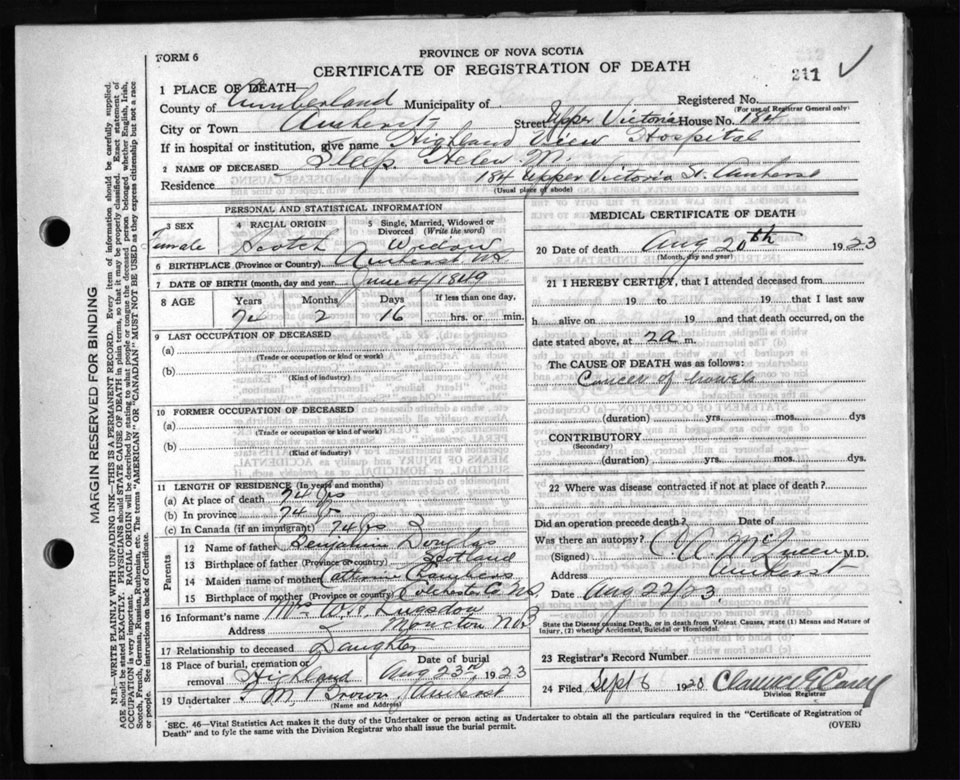 FORM 6
PROVINCE OF NOVA SCOTIA
CERTIFICATE OF REGISTRATION OF DEATH
211
1 PLACE OF DEATH
County of Cumberland Municipality of Registered No.
(For use of Registrar General only)
City or Town Amherst Street Upper Victoria House No. 184
If in hospital or institution, give name Highland View Hospital
2 NAME OF DECEASED Sleep Helen M.
Residence 184 Upper Victoria St. Amherst
(Usual place of abode)
PERSONAL AND STATISTICAL INFORMATION
3 SEX 4 RACIAL ORIGIN 5 Single, Married, Widowed or Divorced (Write the word)
Female Scotch Widow
6 BIRTHPLACE (Province or Country) Amherst N.S.
7 DATE OF BIRTH (month, day and year) June 4/1849
8 AGE Years Months Days If less than one day,
74 2 16 hrs. or min.
9 LAST OCCUPATION OF DECEASED
(a)
(Trade or occupation or kind or work)
(b)
(Kind of industry)
10 FORMER OCCUPATION OF DECEASED
(a)
(Trade or occupation or kind of work)
(b)
(Kind of industry)
11 LENGTH OF RESIDENCE (In years and months)
(a) At place of death 74 yrs
(b) In province 74 yrs
(c) In Canada (if an immigrant) 74 yrs
Parents
12 Name of father Benjamin Douglas
13 Birthplace of father (Province or country) Scotland
14 Maiden name of mother Catherine Chambers
15 Birthplace of mother (Province or country) Colchester Co. N.S.
16 Informant's name Mrs W.
Address Moncton NB
17 Relationship to deceased Daughter
18 Place of burial, cremation or removal Highland Date of burial Aug 23rd, 1923
19 Undertaker M Brown Amherst
(Name and Address)
MEDICAL CERTIFICATE OF DEATH
20 Date of death Aug 20th 1923
(Month, day and year)
21 I HEREBY CERTIFY, that I attended deceased from
19 to 19 that I last saw
h alive on 19 and that death occurred, on the
date stated above, at 2 a m.
The CAUSE OF DEATH was as follows:
Cancer of bowels
(duration) yrs. mos. dys
CONTRIBUTORY
(Secondary)
(duration) yrs. mos. dys.
22 Where was disease contracted if not at place of death?
Did an operation precede death? Date of
Was there an autopsy?
(Signed) McQueen M.D.
Address Amherst
Date Aug 22/23
State the Disease causing Death, or in death from Violent Causes, state (1) Means and Nature of
Injury, (2) whether Accidental, Suicidal or Homicidal.
23 Registrar's Record Number
24 Filed Sept 6 1923 Clarence E Casey
Division Registrar
SEC. 46—Vital Statistics Act makes it the duty of the Undertaker or person acting as Undertaker to obtain all the particulars required in the "Certificate of Registration of
Death" and to fyle the same with the Division Registrar who shall issue the burial permit.
(OVER)
MARGIN RESERVED FOR BINDING
N.B.—WRITE PLAINLY WITH UNFADING INK—THIS IS A PERMANENT RECORD. Every item of information should be carefully supplied.
AGE should be stated EXACTLY. PHYSICIANS should STATE CAUSE OF DEATH in plain terms, so that it may be properly classified. Exact statement of
OCCUPATION is very important. RACIAL ORIGIN will be described by stating to what people or tongue the deceased person belonged whether English, Irish,
Scotch, French, German, Russian, Ruthenian, etc. The terms "AMERICAN" or "CANADIAN" MUST NOT BE USED as they express citizenship but not a race
or people. See instructions on back of Certificate.